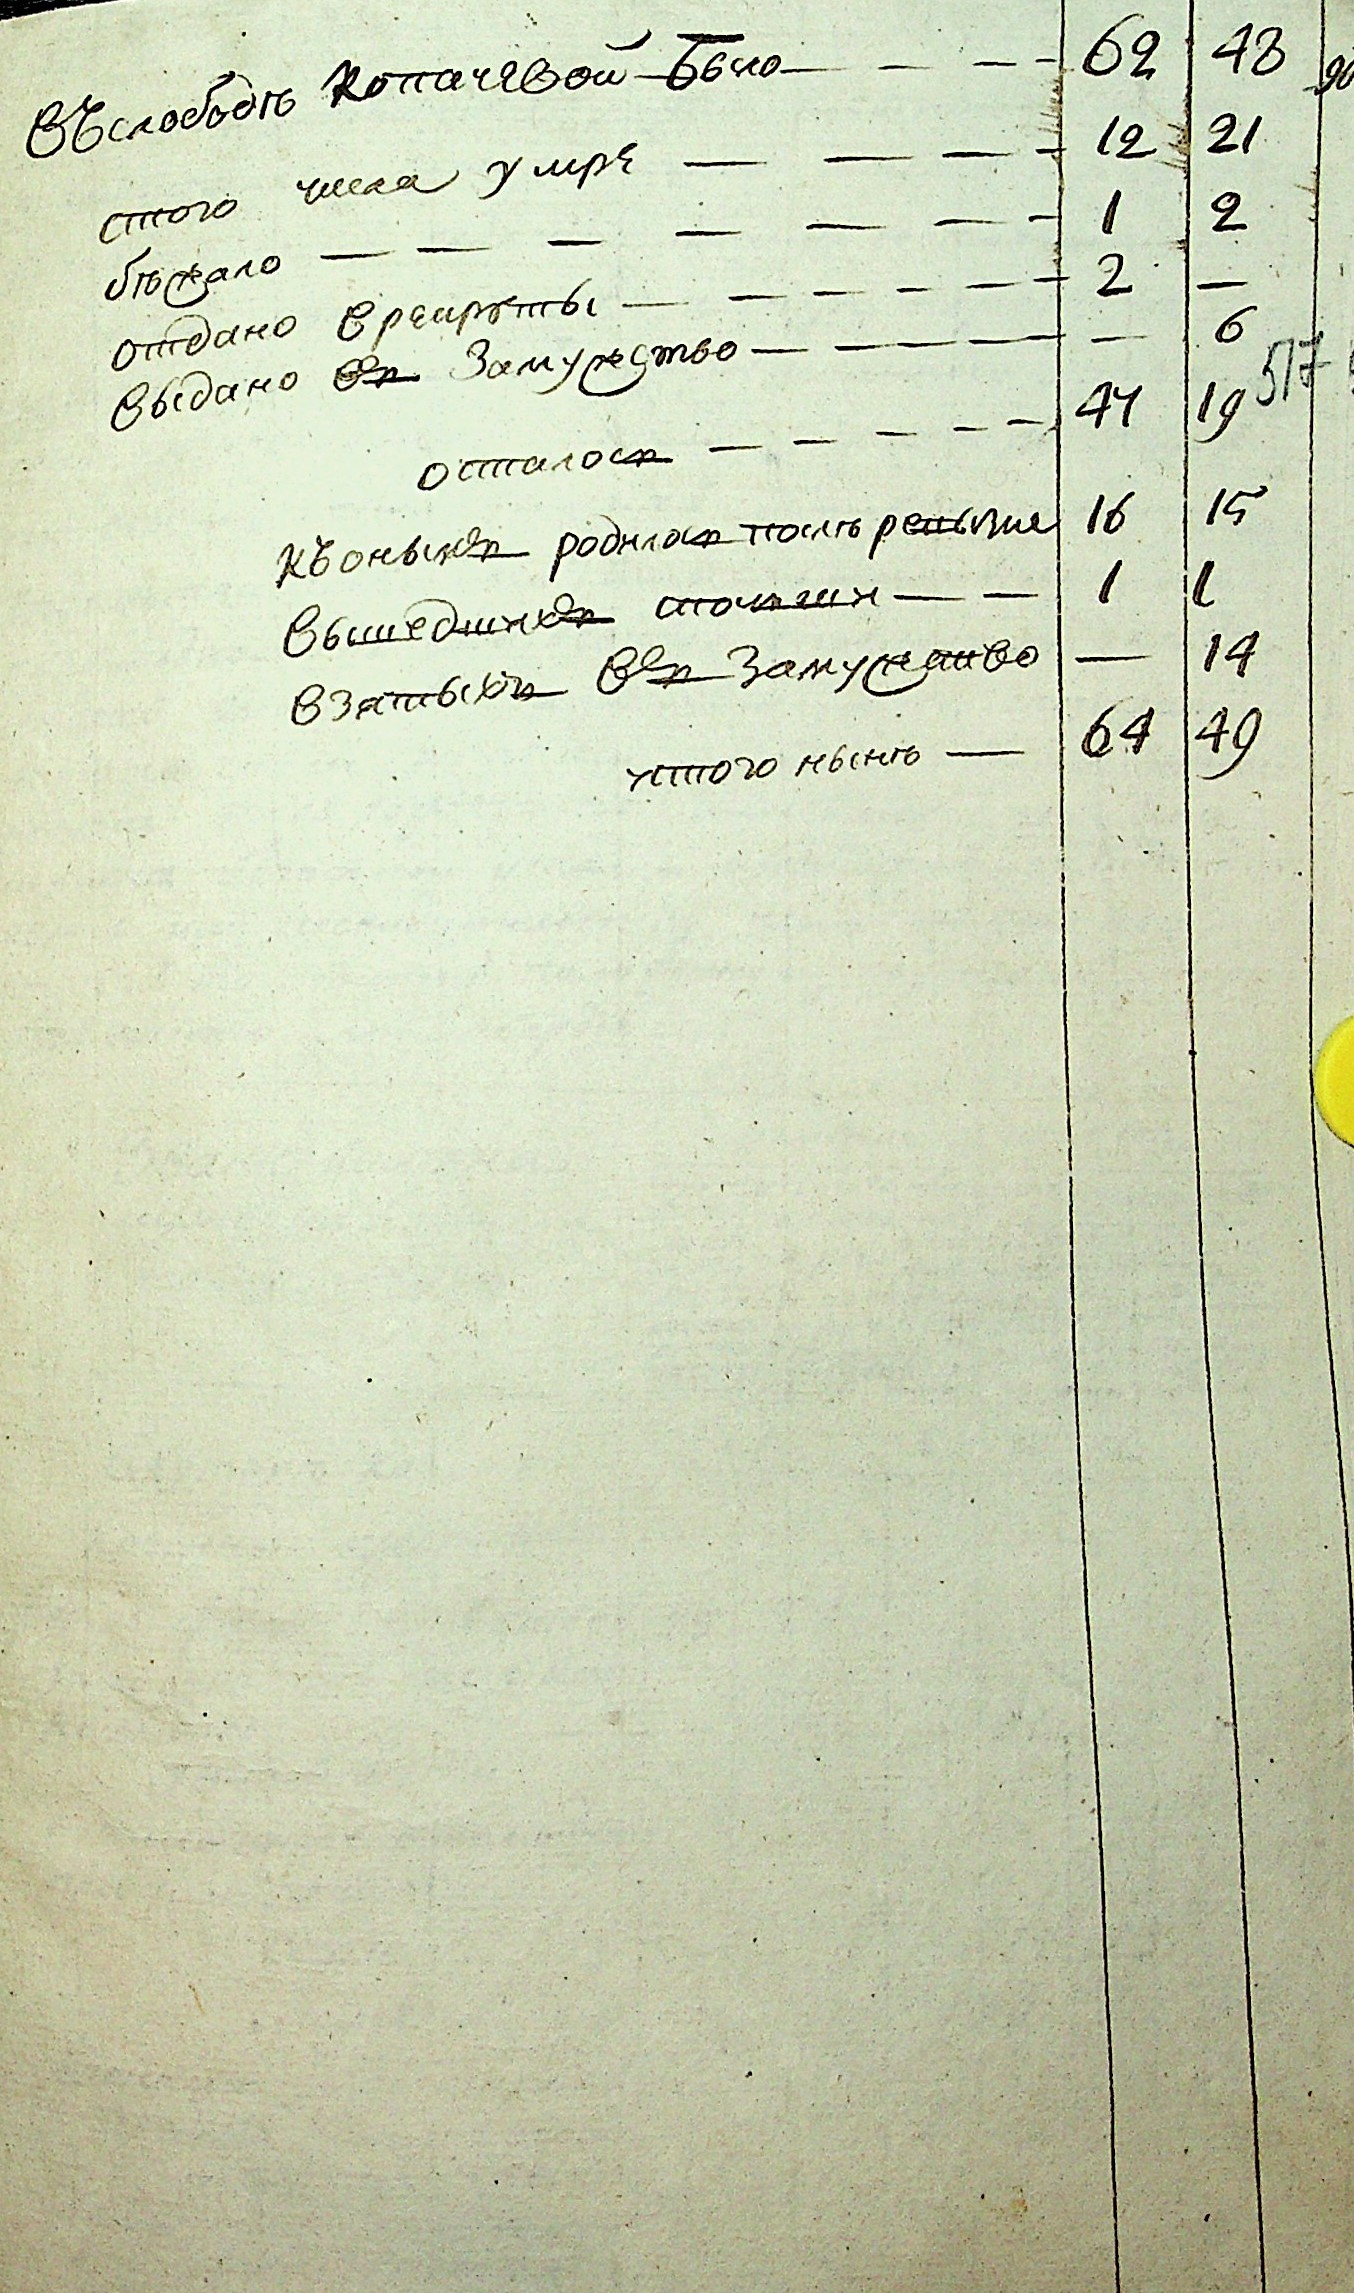 Въ слободѣ Копачевой было — — — — 62 48
с того числа умре — — — — 12 21
бѣжало — — — — — — 1 2
отдано в рекруты — — — — — 2 —
выдано въ замужство — — — — — 6
осталось — — — — — 47 19
517
къ онымъ родилось послѣ ревизие 16 15
вышедших — — 1 1
взятыхъ въ замужство — 14
итого нынѣ — 64 49